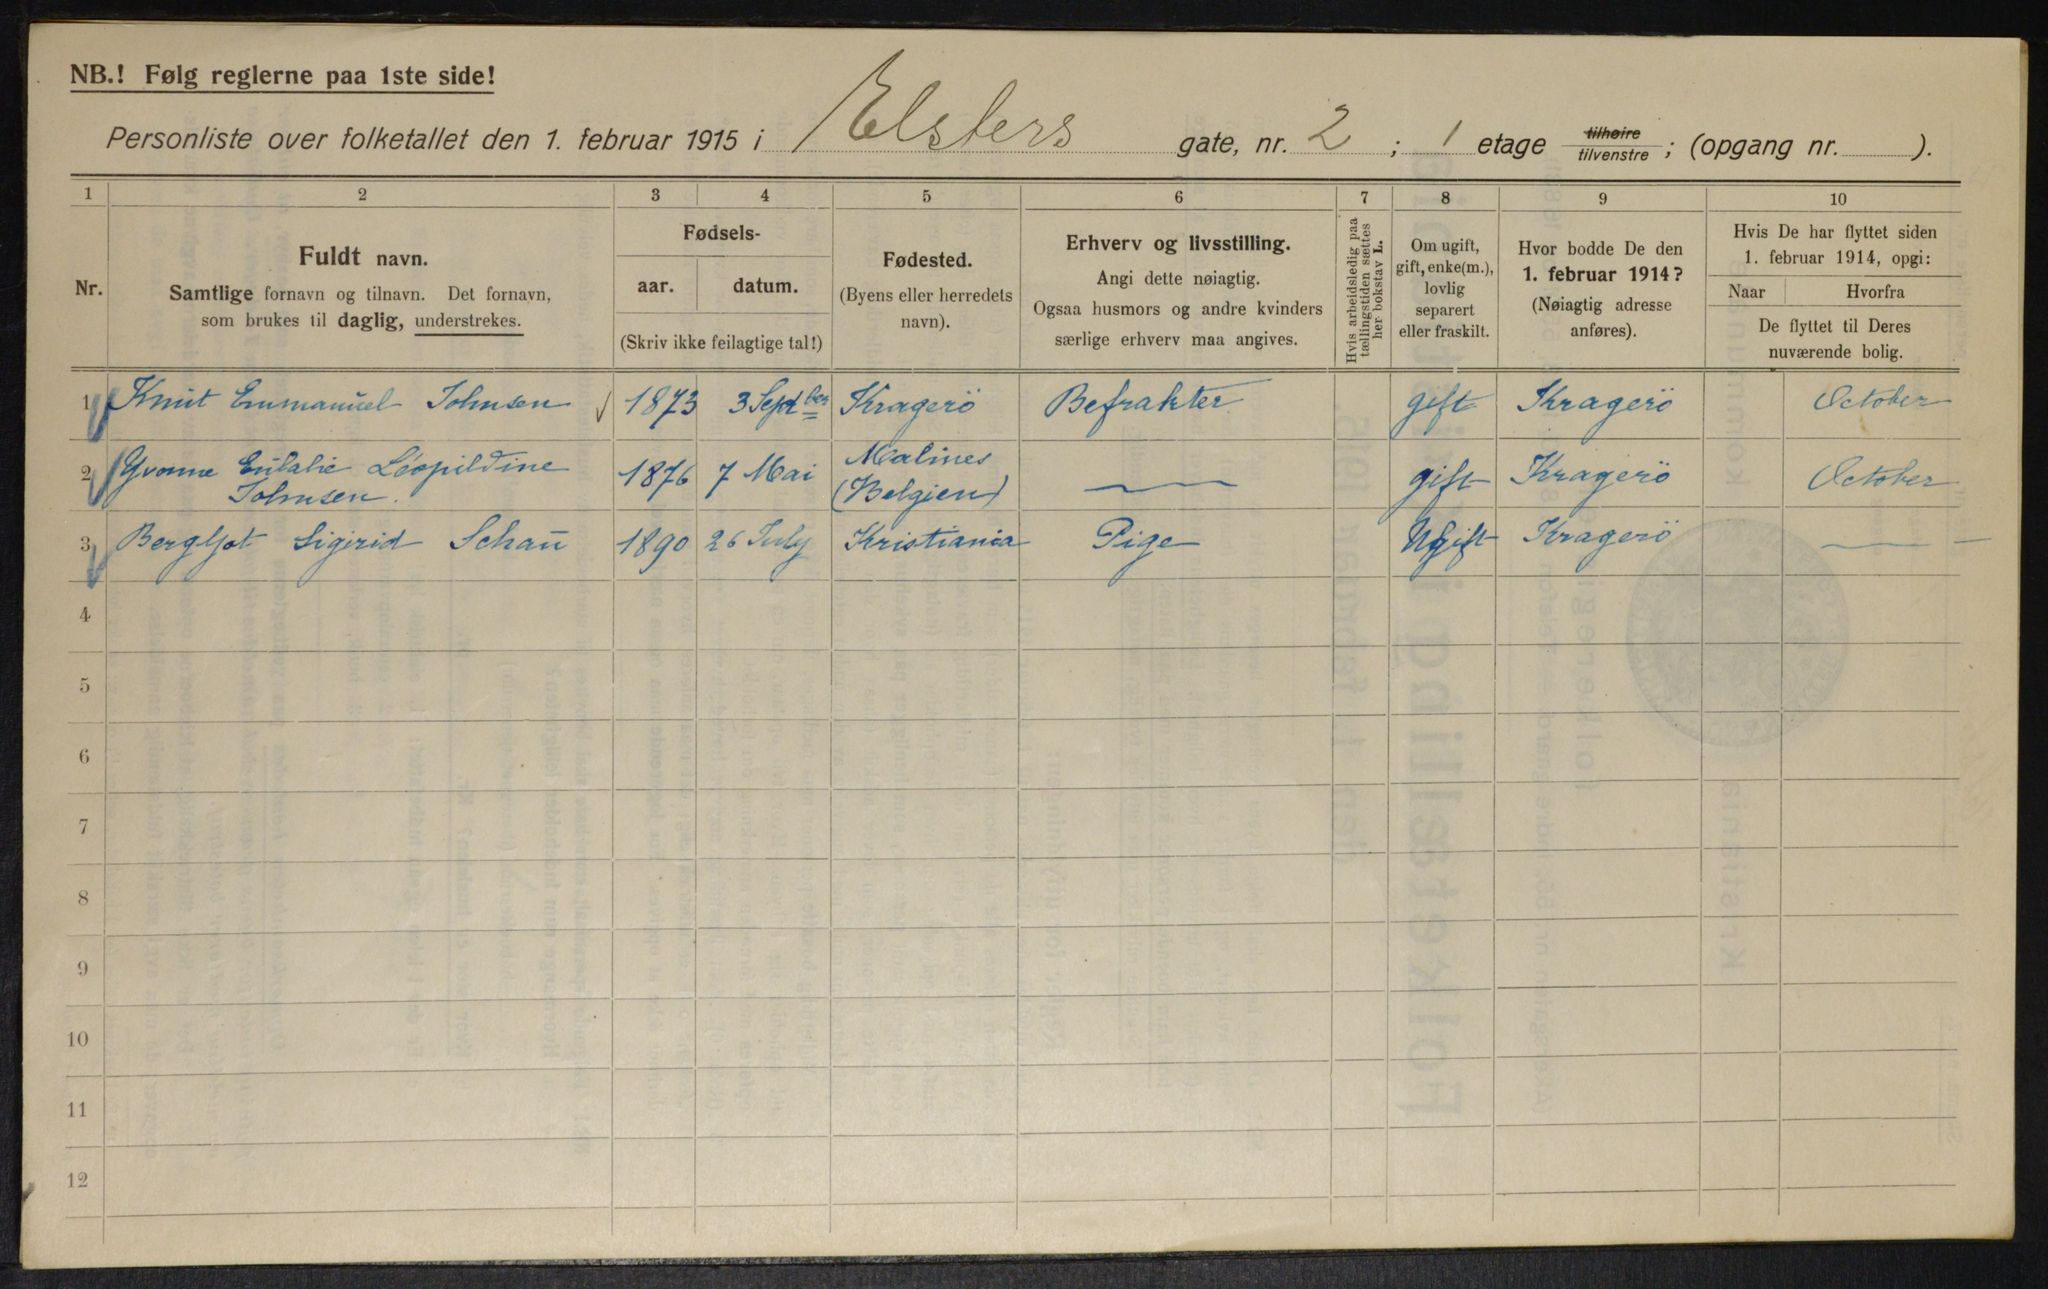 NB.! Følg reglerne paa 1ste side!
Personliste over folketallet den 1. februar 1915 i Elsters gate, nr. 2 ; 1 etage tilhøire tilvenstre ; (opgang nr. ).
1 2 3 4 5 6 7 8 9 10
Nr.
Fuldt navn.
Samtlige fornavn og tilnavn. Det fornavn,
som brukes til daglig, understrekes.
Fødsels-
aar. datum.
(Skriv ikke feilagtige tal!)
Fødested.
(Byens eller herredets
navn).
Erhverv og livsstilling.
Angi dette nøiagtig.
Ogsaa husmors og andre kvinders
særlige erhverv maa angives.
Hvis arbeidsledig paa
tællingstiden sættes
her bokstav L.
Om ugift,
gift, enke(m.),
lovlig
separert
eller fraskilt.
Hvor bodde De den
1. februar 1914?
(Nøiagtig adresse
anføres).
Hvis De har flyttet siden
1. februar 1914, opgi:
Naar Hvorfra
De flyttet til Deres
nuværende bolig.
1 Knut Emmanuel Johnsen 1873 3 Septber Kragerö Befrakter gift Kragerö October
2 Yvonne Eulalie Léopildine Johnsen. 1876 7 Mai Malines (Belgien) gift Kragerö October
3 Bergljot Sigirid Schau 1890 26 July Kristiania Pige Ugift Kragerö
4
5
6
7
8
9
10
11
12